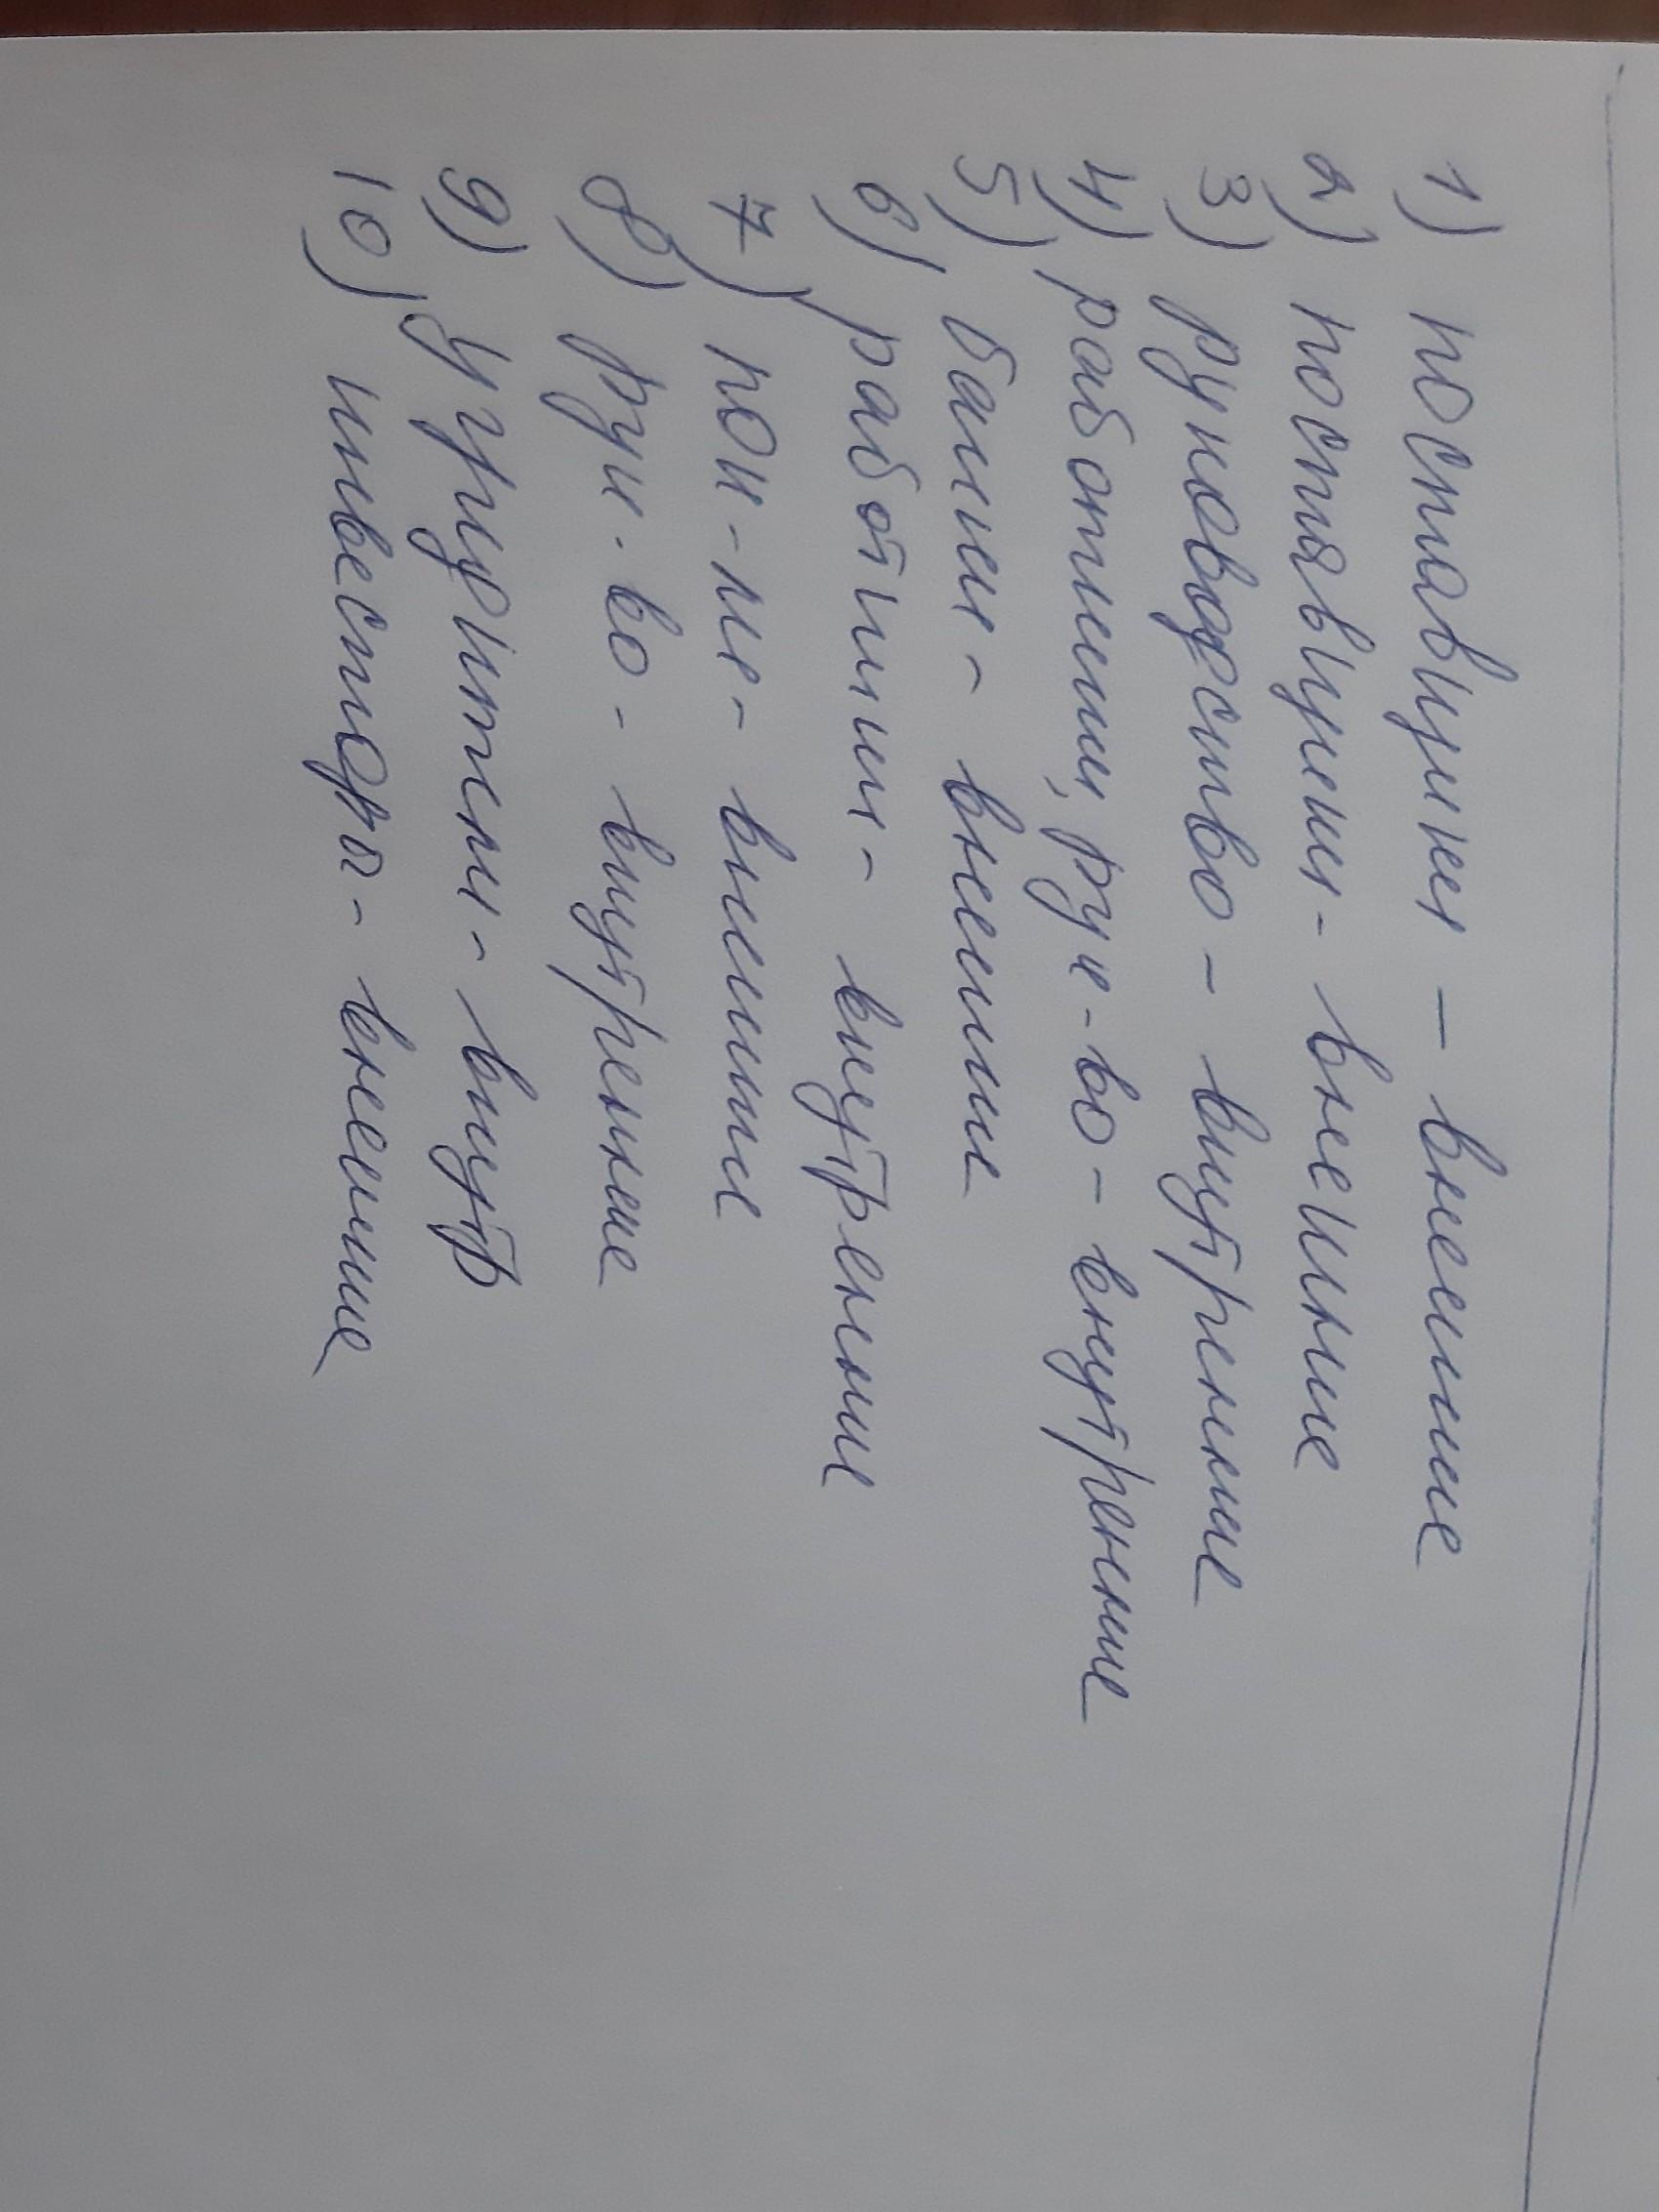 1) поставщики – внешние
2) поставщики - внешние
3) руководство - внутренние
4) работники, рук-во - внутренние
5) банки - внешние
6) работники - внутренние
7) пок-ли - внешние
8) рук-во - внутренние
9) учредители - внутр
10) инвесторы - внешние